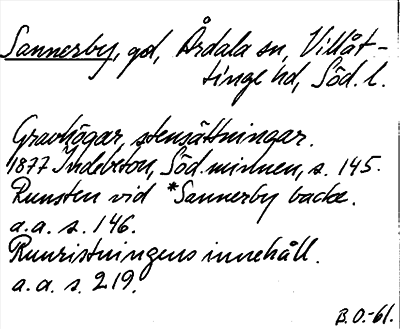 Sannerby, gd, Årdala sn, Villåt-
tinge hd, Söd. l.
Gravhögar, stensättningar.
1877 Indebetou, Söd. minnen, s. 145.
Runsten vid *Sannerby backe.
a.a. s. 146.
Runristningens innehåll.
a.a. s. 219.
B.O.-61.